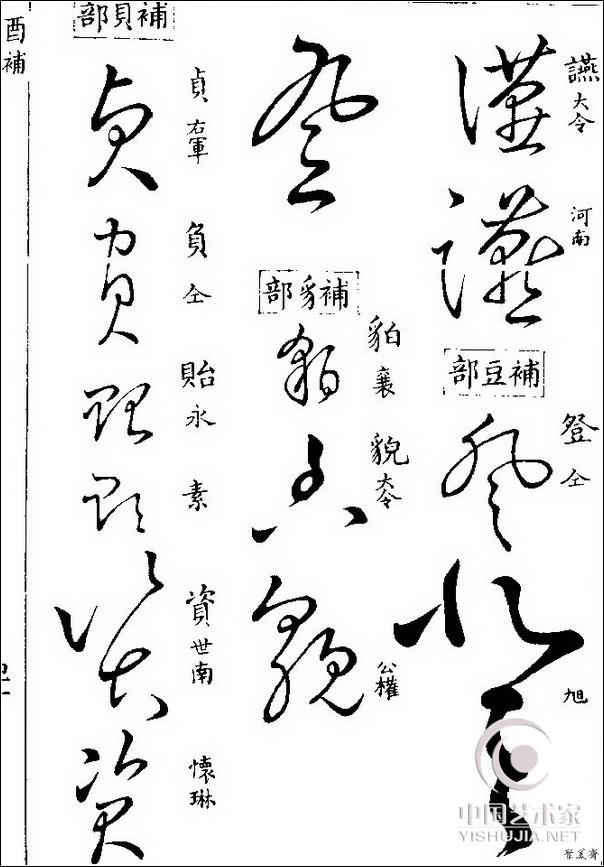 讌 大令
河南
補豆部
登 仝
旭
補豸部
貃 襄
貌 大令
公權
補貝部
貞 右軍
負 仝
貽 永
素
資 世南
懷琳
酉補
中国艺术家
YISHUJIA.NET